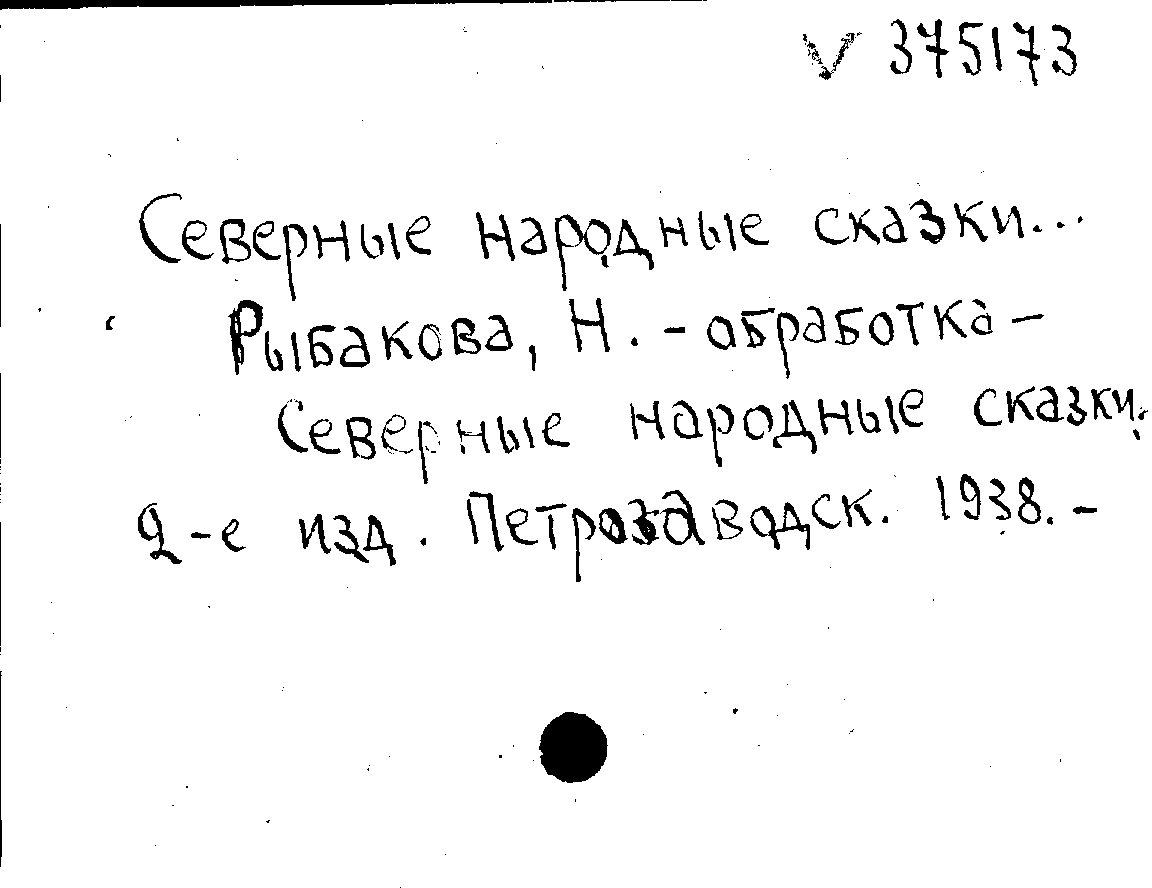 V 375173
Северные народные сказки...
Рыбакова, Н. - обработка -
Северные народные сказки.
2-е изд. Петрозаводск. 1938. -